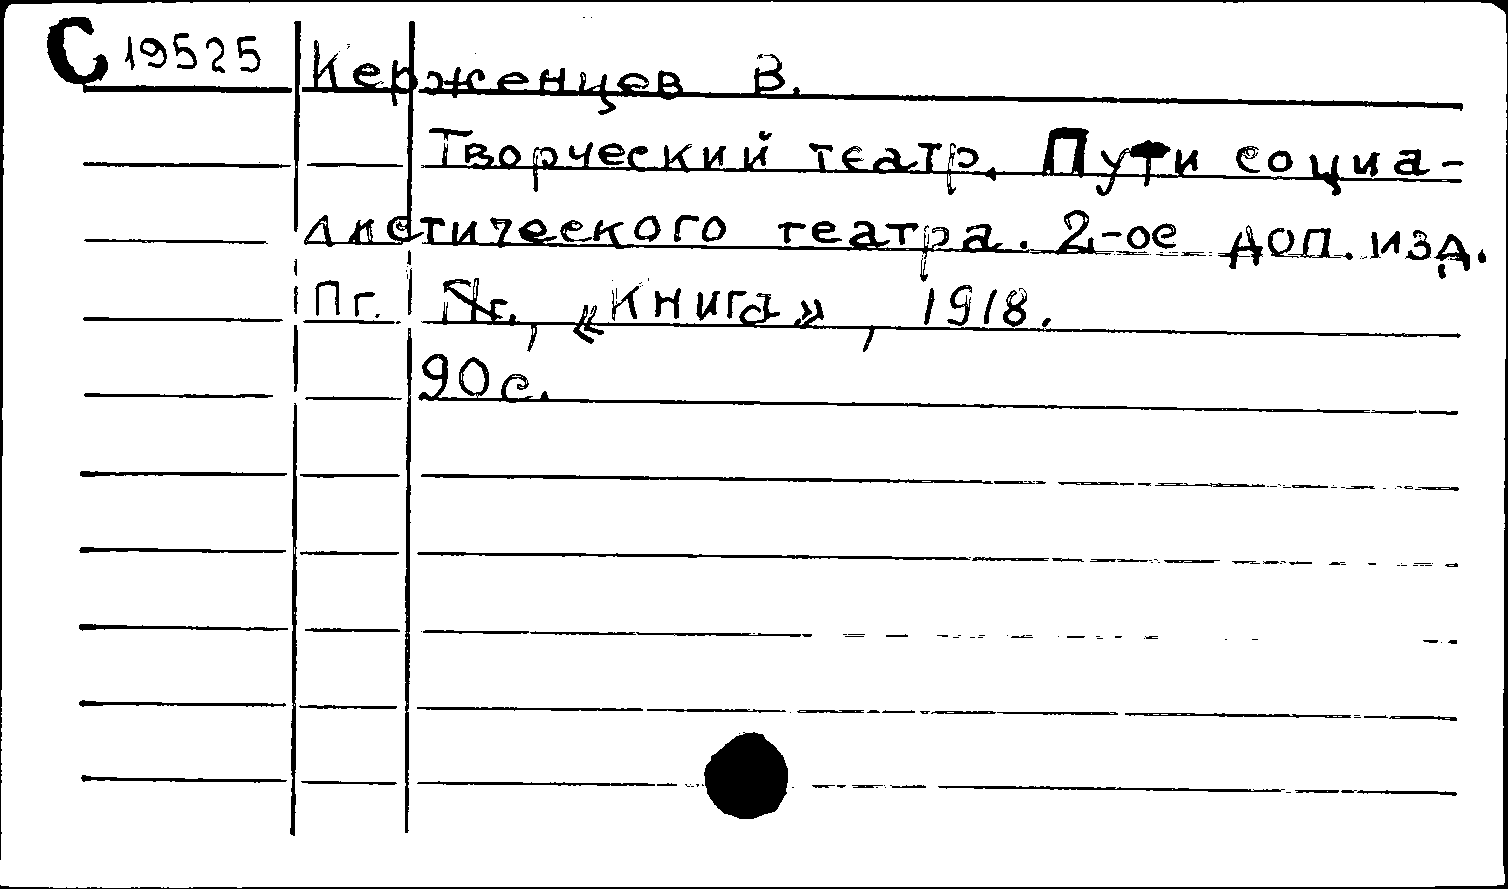 С 19525 Керженцев В.
Творческий театр. Пути социа-
листического театра. 2-ое доп. изд.
Пг. Пг., «Книга», 1918.
90 с.